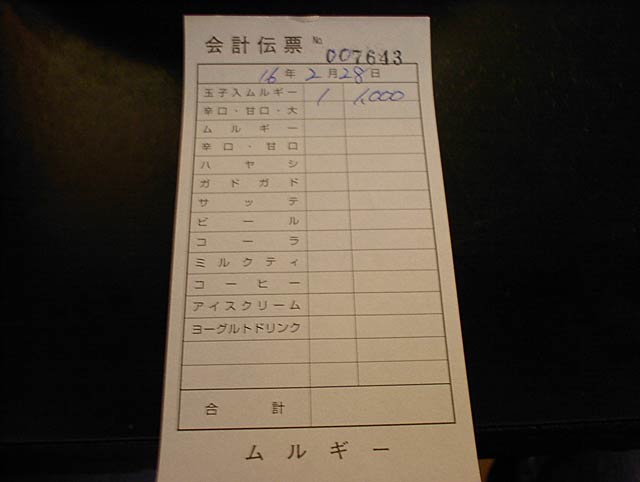 会計伝票 № 007643
16年 2月28日
玉子入ムルギー 1 1,000
辛口・甘口・大
ムルギー
辛口・甘口
ハヤシ
ガドガド
サッテ
ビール
コーラ
ミルクティ
コーヒー
アイスクリーム
ヨーグルトドリンク
合計
ムルギー